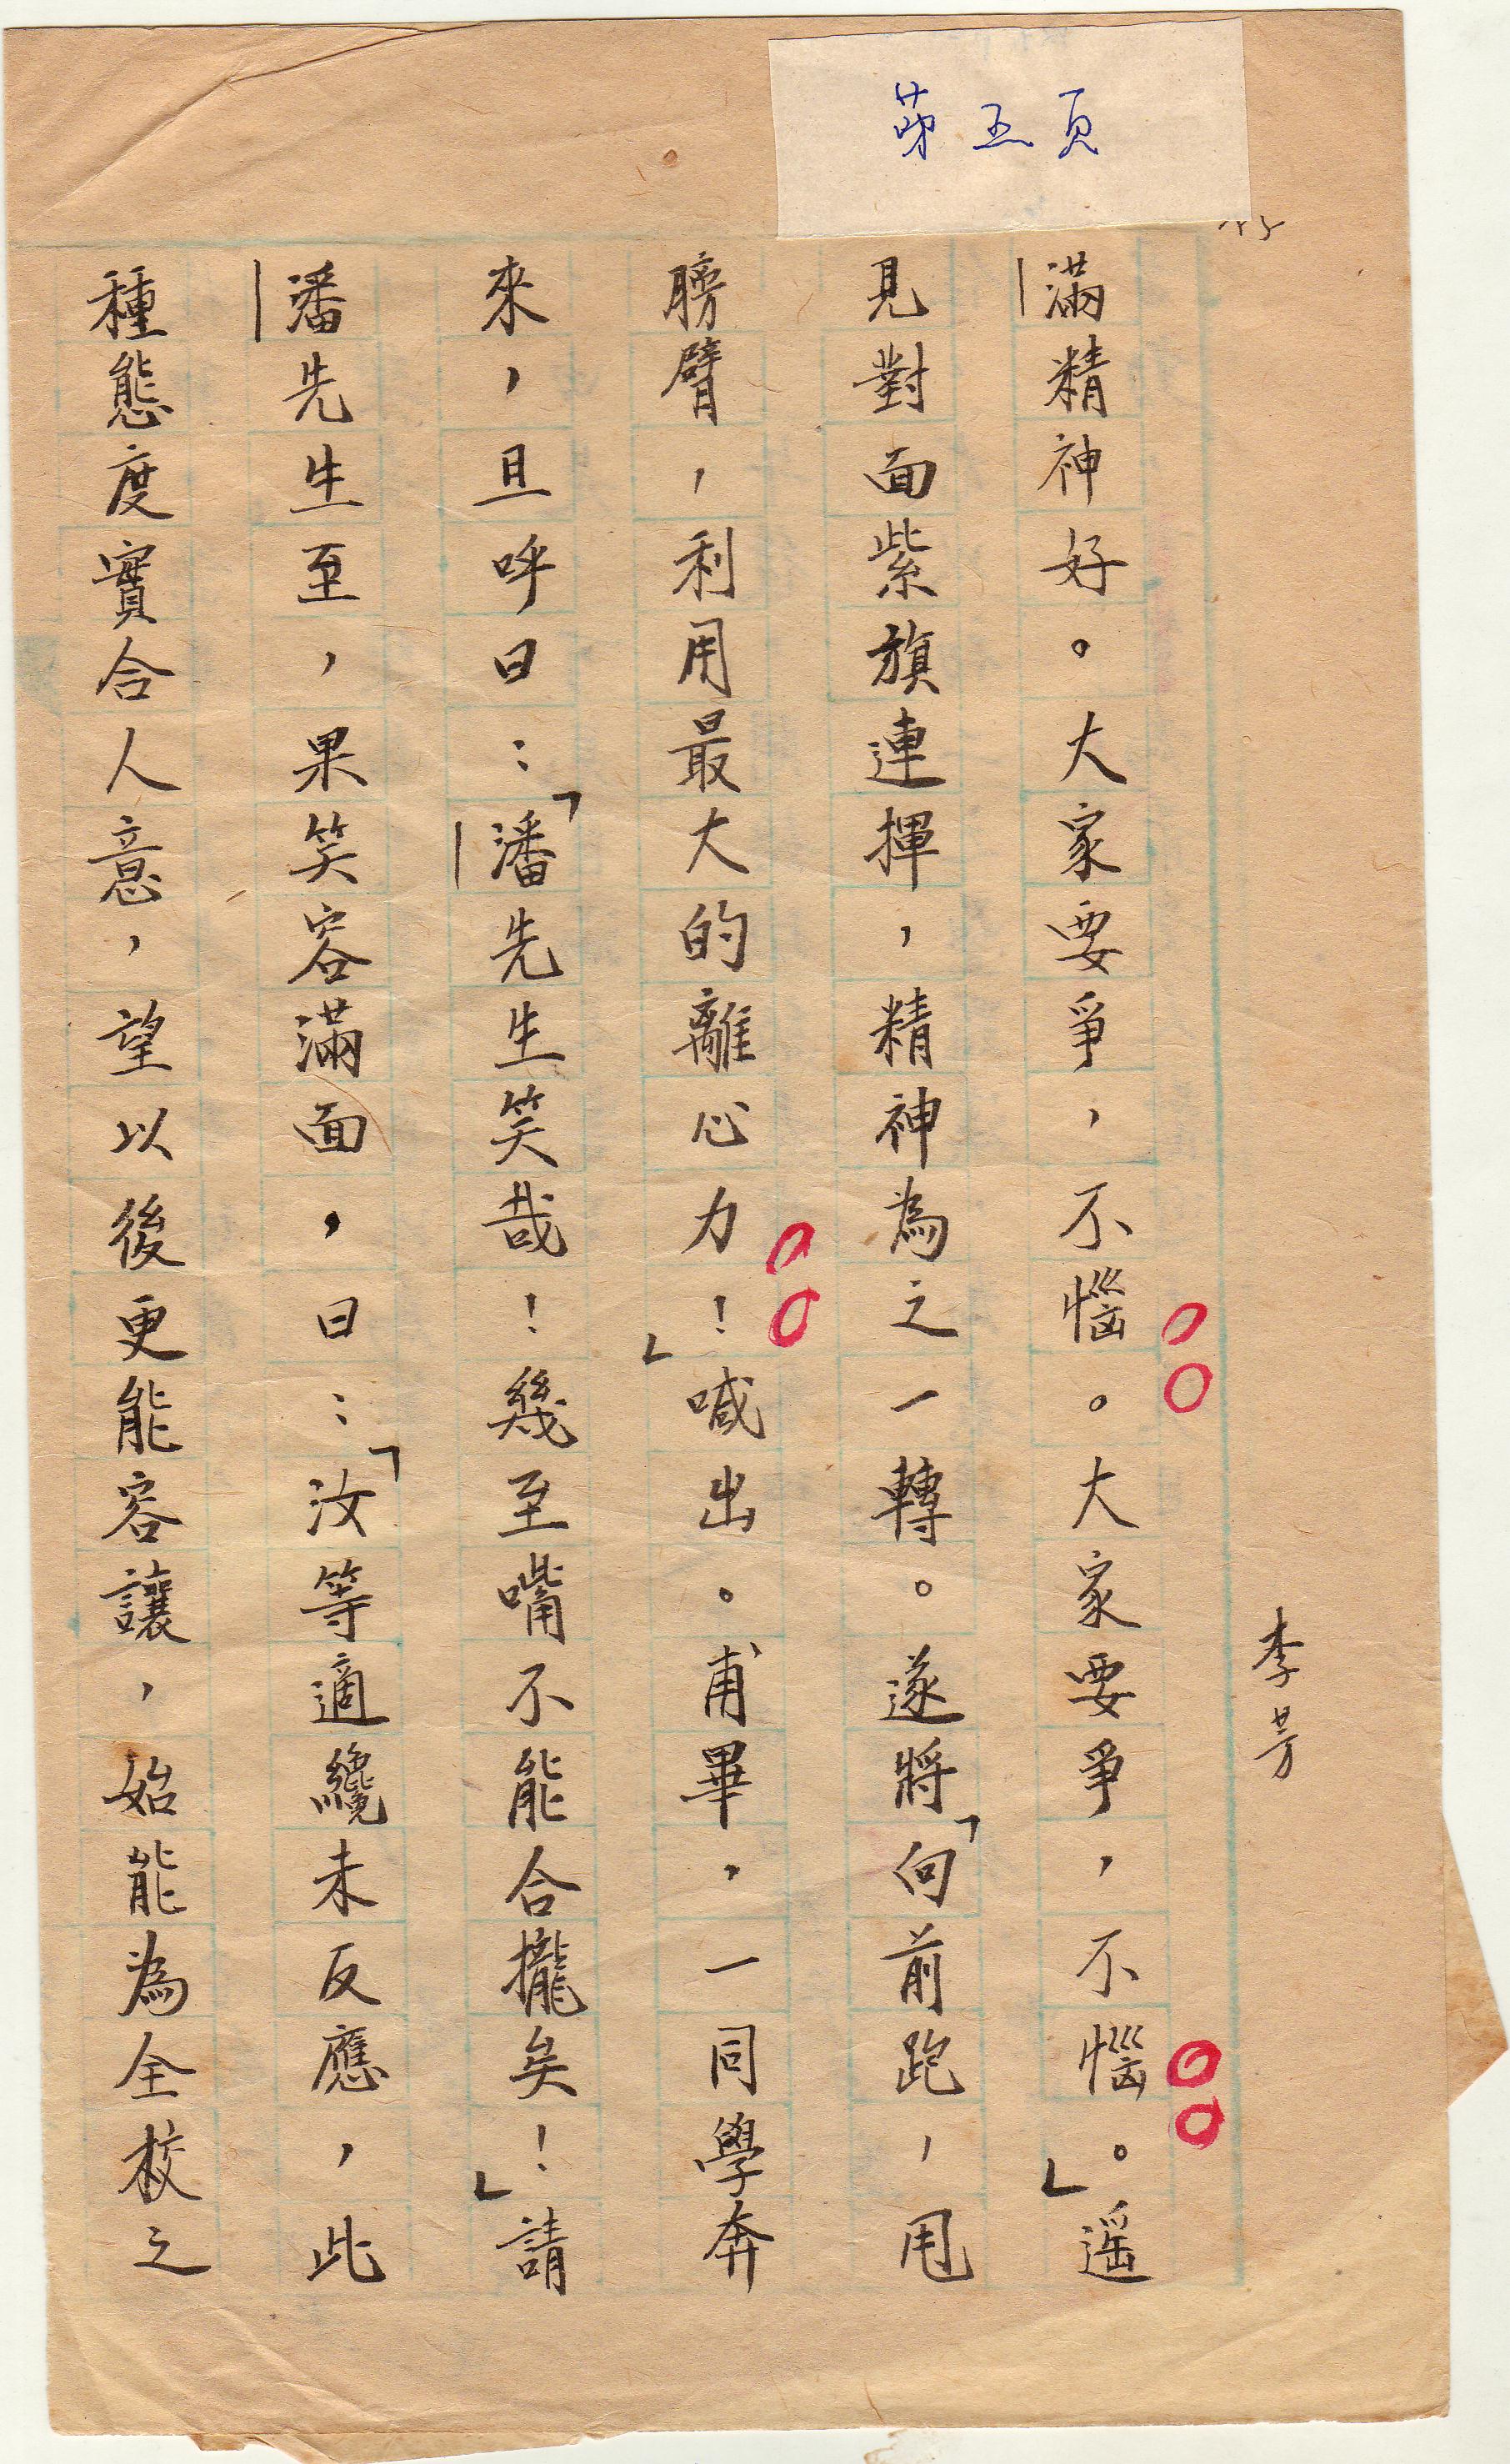 第五頁
李芳
滿精神好。大家要爭，不惱。大家要爭，不惱。」遥
見對面紫旗連揮，精神為之一轉。遂將「向前跑，甩
膀臂，利用最大的離心力！」喊出。甫畢，一同學奔
來，且呼曰：「潘先生笑哉！幾至嘴不能合攏矣！」請
潘先生至，果笑容滿面，曰：「汝等適纔未反應，此
種態度實合人意，望以後更能容讓，始能為全校之